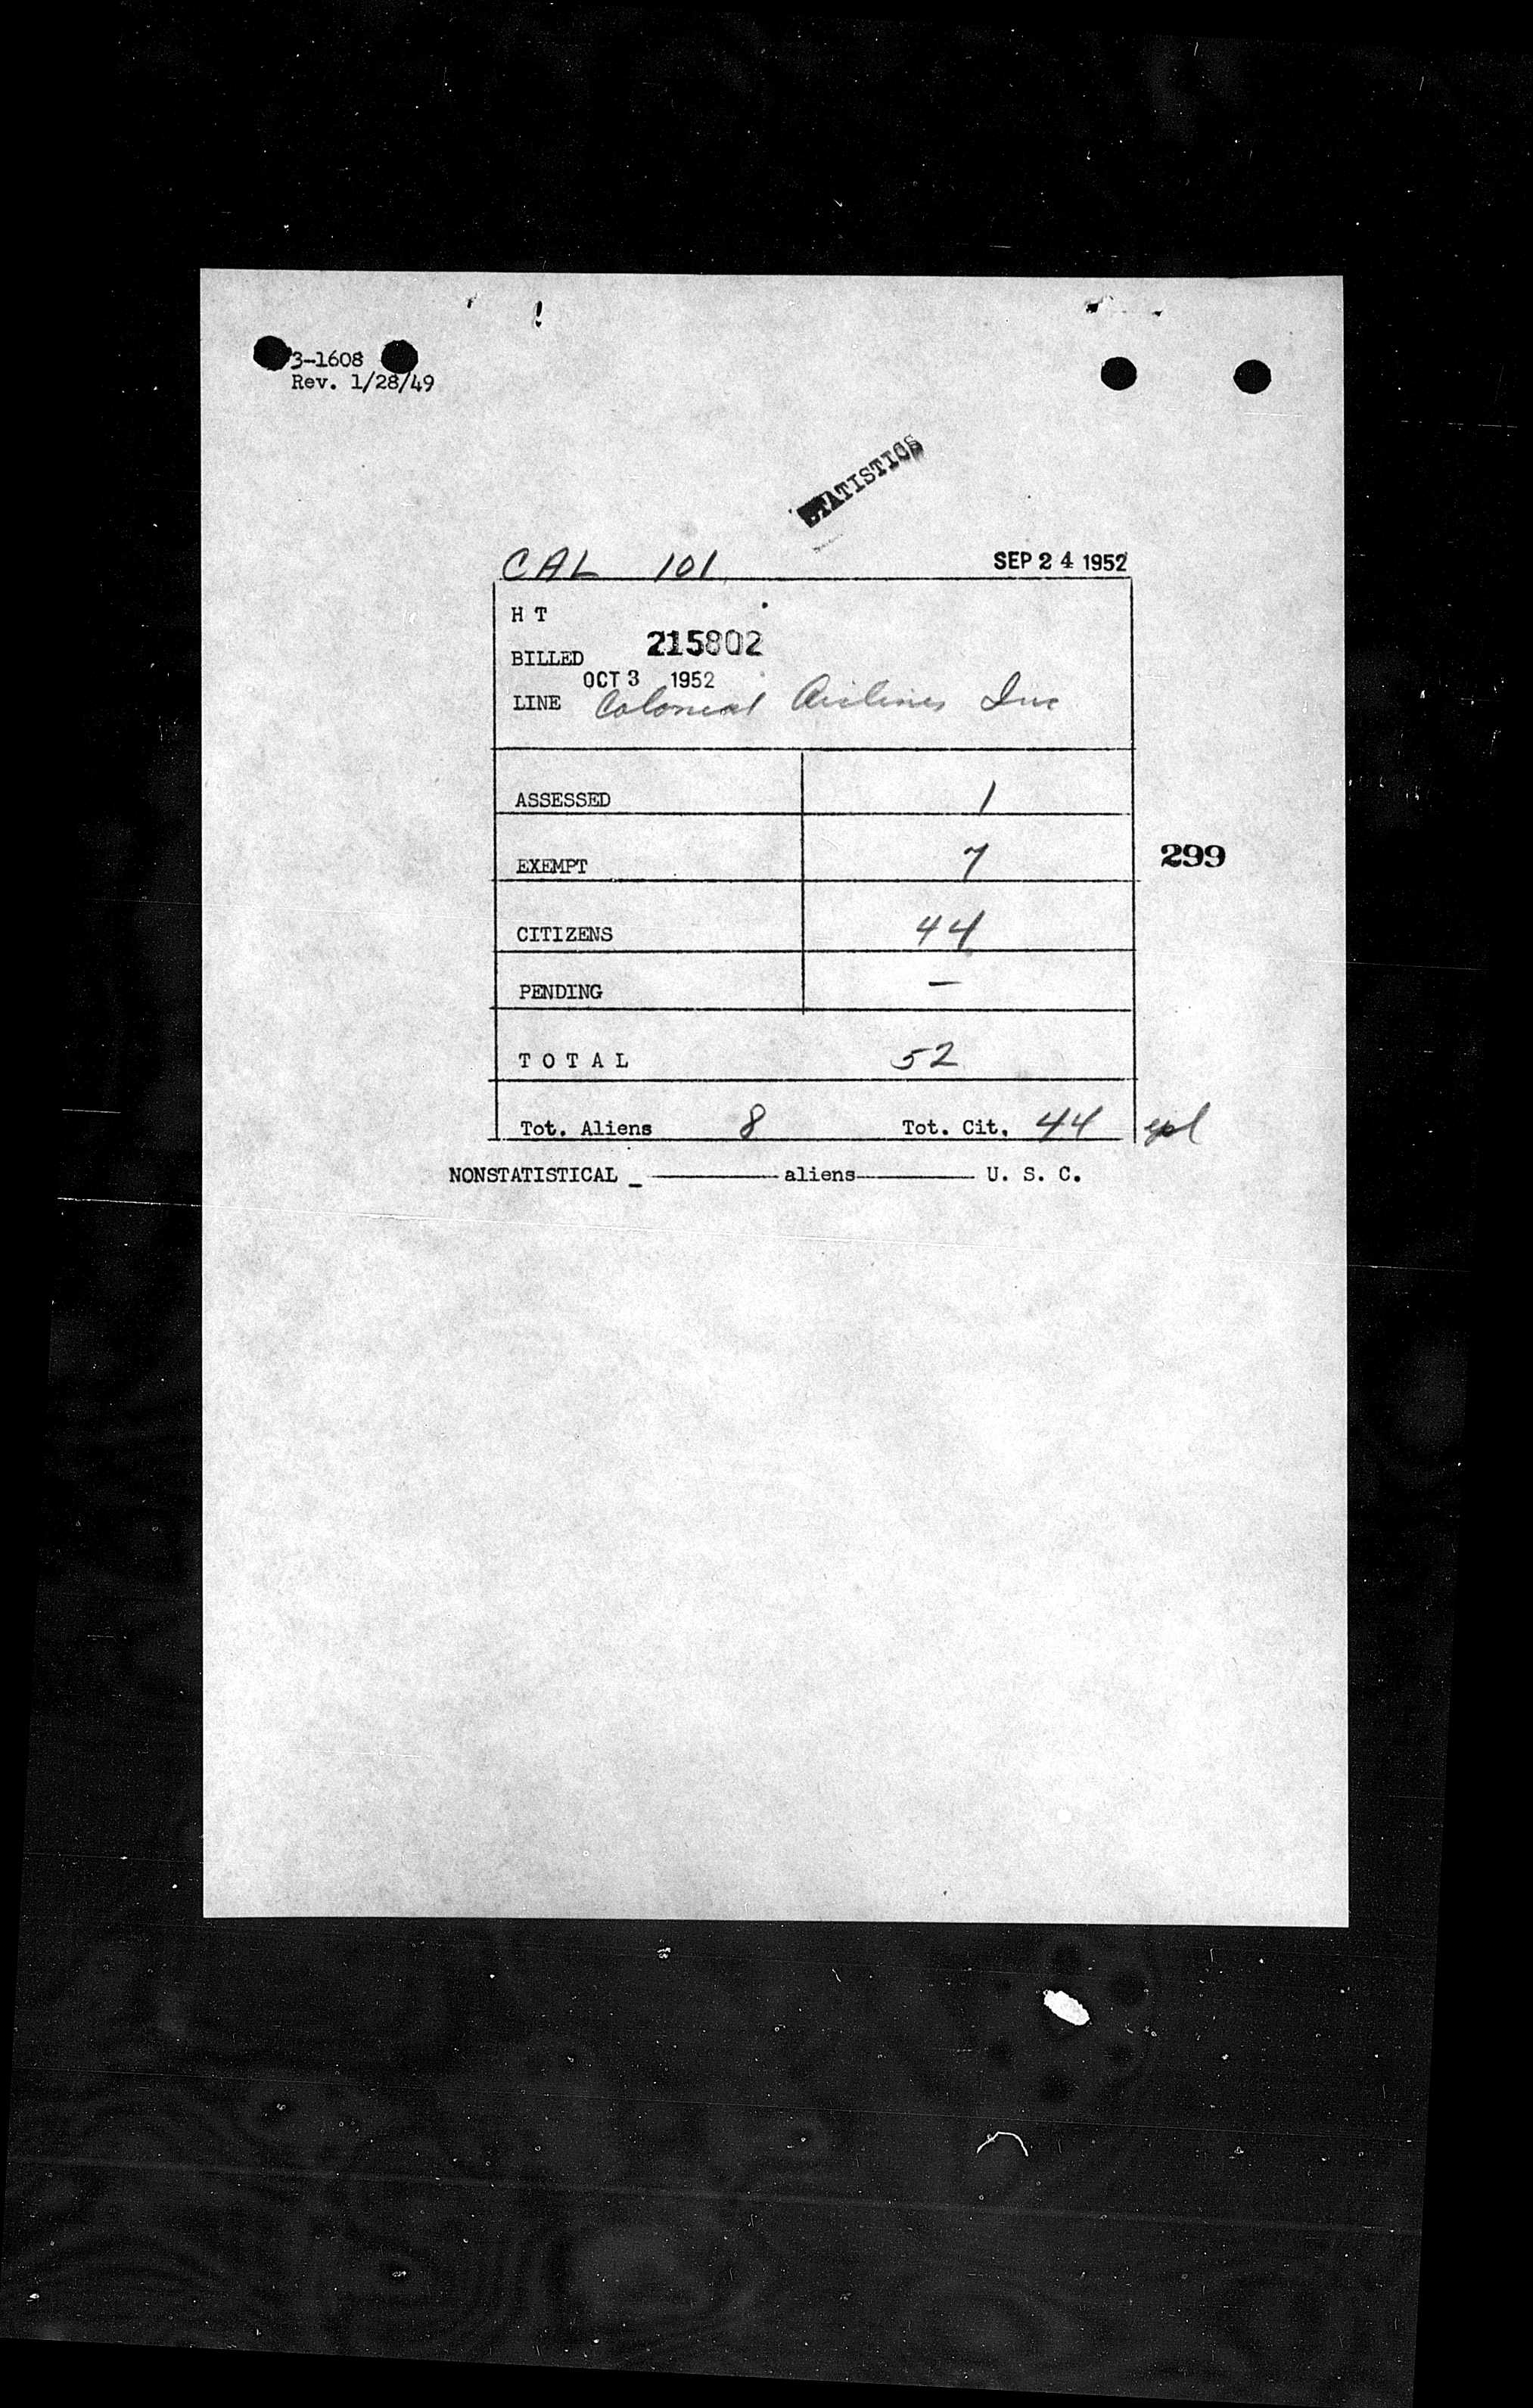 3-1608
Rev. 1/28/49
STATISTICS
CAL 101 SEP 24 1952
H T
BILLED 215802
OCT 3 1952
LINE Colonial Airlines Inc
ASSESSED 1
EXEMPT 7
299
CITIZENS 44
PENDING —
TOTAL 52
Tot. Aliens 8 Tot. Cit. 44
NONSTATISTICAL _ ———— aliens ———— U. S. C.